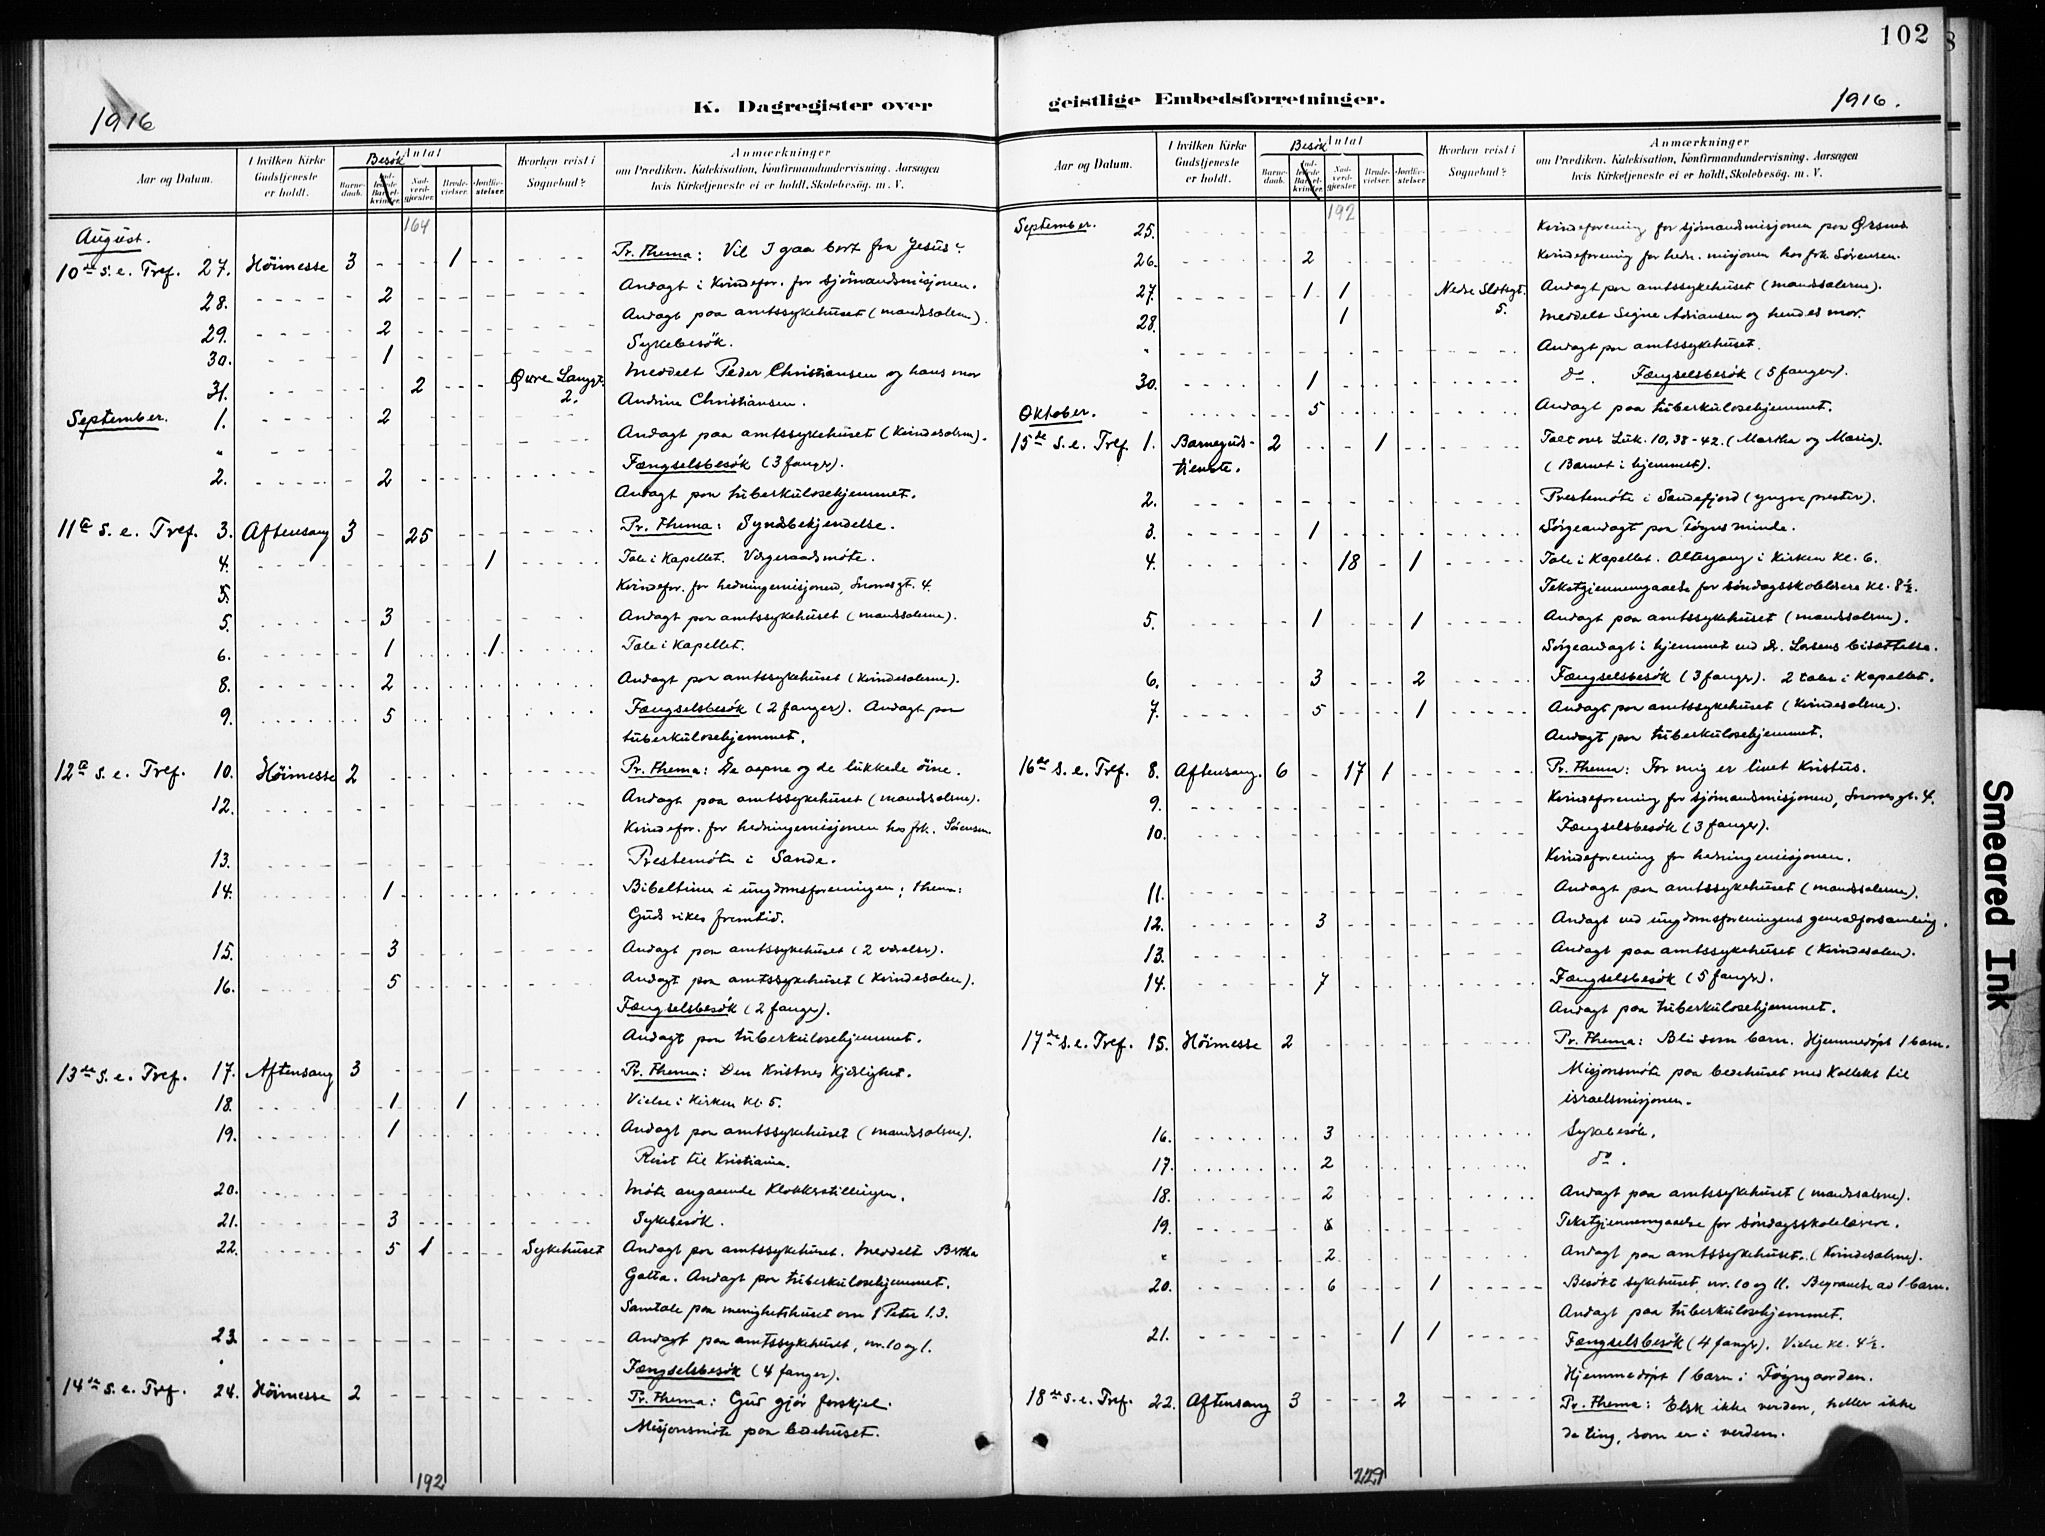 102
1916
K. Dagregister over
geistlige Embedsforretninger.
1916.
Aar og Datum.
I hvilken Kirke Gudstjeneste er holdt.
Besøk
Antal
Barnedaab.
Indledede Barselkvinder.
Nadverdgjæster.
Brudevielser.
Jordfæstelser.
Hvorhen reist i Sognebud?
Anmærkninger
om Prædiken, Katekisation, Konfirmandundervisning, Aarsagen
hvis Kirketjeneste ei er holdt, Skolebesøg, m. V.
164
August.
10de S. e. Tref. 27. Höimesse 3 1 Pr. Thema: Vil I gaa bort fra Jesus?
28. 2 Andagt i Kvindefor. for sjömandsmisjonen.
29. 2 Andagt paa amtssykehuset (mandssalene).
30. 1 Sykebesök.
31. 2 Øvre Langgt. 2. Meddelt Peder Christiansen og hans mor
Andrine Christiansen.
September. 1. 2 Andagt paa amtssykehuset (Kvindesalene).
" Fængselsbesök (3 fanger).
2. 2 Andagt paa tuberkulosehjemmet.
11te S. e. Tref. 3. Aftensang 3 25 Pr. Thema: Syndsbekjendelse.
4. 1 Tale i Kapellet. Vergeraadsmöte.
5. Kvindefor. for hedningemisjonen, Snorresgt. 4.
5. 3 Andagt paa amtssykehuset (mandssalerne).
6. 1 1 Tale i Kapellet.
8. 2 Andagt paa amtssykehuset (Kvindesalerne).
9. 5 Fængselsbesök (2 fanger). Andagt paa
tuberkulosehjemmet.
12te S. e. Tref. 10. Höimesse 2 Pr. Thema: De aapne og de lukkede öine.
12. Andagt paa amtssykehuset (mandssalene).
Kvindefor. for hedningemisjonen hos frk. Sörensen.
13. Prestemöte i Sande.
14. 1 Bibeltime i ungdomsforeningen; Thema:
Guds rikes fremtid.
15. 3 Andagt paa amtssykehuset (2 værelser).
16. 5 Andagt paa amtssykehuset (Kvindesalen).
Fængselsbesök (2 fanger).
Andagt paa tuberkulosehjemmet.
13de S. e. Tref. 17. Aftensang 3 Pr. Thema: Den Kristnes Kjærlighet.
18. 1 1 Vielse i Kirken kl. 5.
19. 1 Andagt paa amtssykehuset (mandssalene).
Reist til Kristiania.
20. Möte angaaende Klokkerstillingen.
21. 3 Sykebesök.
22. 5 1 Sykehuset Andagt paa amtssykehuset. Meddelt Bertha
Andagt paa tuberkulosehjemmet.
Samtale paa menighetshuset om 1 Peter 1.3.
23. Andagt paa amtssykehuset, nr. 10 og 1.
Fængselsbesök (4 fanger).
14de S. e. Tref. 24. Höimesse 2 Pr. Thema: Gud gjör forskjel.
Misjonsmöte paa bedehuset.
192
Aar og Datum.
I hvilken Kirke Gudstjeneste er holdt.
Besøk
Antal
Barnedaab.
Indledede Barselkvinder.
Nadverdgjæster.
Brudevielser.
Jordfæstelser.
Hvorhen reist i Sognebud?
Anmærkninger
om Prædiken, Katekisation, Konfirmandundervisning, Aarsagen
hvis Kirketjeneste ei er holdt, Skolebesøg, m. V.
192
September. 25. Kvindeforening for sjömandsmisjonen paa Ørsnes
26. 2 Kvindeforening for hedn. misjonen hos frk. Sörensen.
27. 1 1 Nedre Slotsgt. 5. Andagt paa amtssykehuset (mandssalerne).
28. 1 Meddelt Signe Adriansen og hendes mor.
" Andagt paa amtssykehuset.
30. 1 do. Fængselsbesök (5 fanger).
Oktober. 5 Andagt paa tuberkulosehjemmet.
15de S. e. Tref. 1. Barnegudstjeneste. 2 1 Talt over Luk. 10,38-42. (Martha og Maria).
(Barnet i hjemmet).
2. Prestemöte i Sandefjord (yngre prester).
3. 1 Sörgeandagt paa minde.
4. 18 1 Tale i Kapellet. Altergang i Kirken kl. 6.
Tekstgjennemgaaelse for söndagsskolelærere kl. 8½.
5. 1 1 Andagt paa amtssykehuset (mandssalerne).
Sörgeandagt i hjemmet ved bisættelse.
6. 3 2 Fængselsbesök (3 fanger). 2 taler i Kapellet.
7. 5 1 Andagt paa amtssykehuset (Kvindesalene).
Andagt paa tuberkulosehjemmet.
16de S. e. Tref. 8. Aftensang. 6 17 1 Pr. Thema: For mig er livet Kristus.
9. Kvindeforening for sjömandsmisjonen, Snorresgt. 4.
10. Fængselsbesök (3 fanger).
Kvindeforening for hedningemisjonen.
11. Andagt paa amtssykehuset (mandssalerne).
12. 3 Andagt ved ungdomsforeningens generalforsamling.
13. Andagt paa amtssykehuset (Kvindesalen).
14. 7 Fængselsbesök (5 fanger).
Andagt paa tuberkulosehjemmet.
17de S. e. Tref. 15. Höimesse 2 Pr. Thema: Bli som barn. Hjemmedöpt 1 barn.
Misjonsmöte paa bedehuset med Kollekt til
israelsmisjonen.
16. 3 Sykebesök.
17. 2 do.
18. 2 Andagt paa amtssykehuset (mandssalene).
19. 6 Tekstgjennemgaaelse for söndagsskolelærere.
" 2 Andagt paa amtssykehuset. (Kvindesalerne).
20. 6 1 Besökt sykehuset, nr. 10 og 11. Begravelse av 1 barn.
Andagt paa tuberkulosehjemmet.
21. 1 1 Fængselsbesök (4 fanger). Vielse kl. 4½.
Hjemmedöpt 1 barn i
18de S. e. Tref. 22. Aftensang 3 2 Pr. Thema: Elsk ikke verden, heller ikke
de ting, som er i verden.
229
Smeared Ink